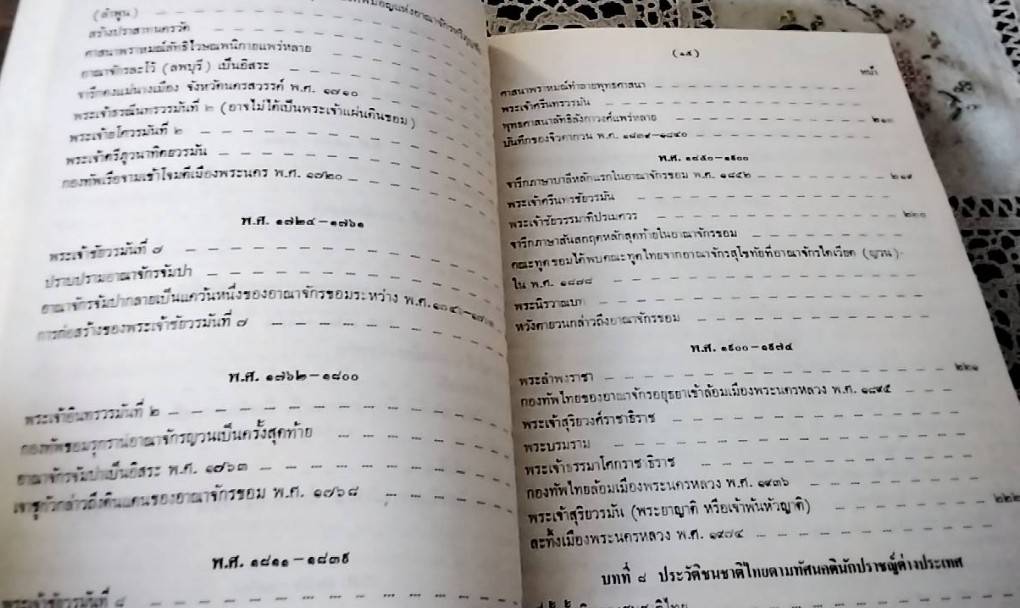 (ลำพูน)
สร้างปราสาทนครวัด
ศาสนาพราหมณ์ลัทธิไวษณพนิกายแพร่หลาย
อาณาจักรละโว้ (ลพบุรี) เป็นอิสระ
จารึกดงแม่นางเมือง จังหวัดนครสวรรค์ พ.ศ. ๑๗๑๐
พระเจ้าธรณีนทรวรมันที่ ๒ (อาจไม่ได้เป็นพระเจ้าแผ่นดินขอม)
พระเจ้ายโศวรมันที่ ๒
พระเจ้าตรีภูวนาทิตยวรมัน
กองทัพเรือจามเข้าโจมตีเมืองพระนคร พ.ศ. ๑๗๒๐
พ.ศ. ๑๗๒๔-๑๗๖๑
พระเจ้าชัยวรมันที่ ๗
ปราบปรามอาณาจักรจัมปา
อาณาจักรจัมปากลายเป็นแคว้นหนึ่งของอาณาจักรขอมระหว่าง พ.ศ.
การก่อสร้างของพระเจ้าชัยวรมันที่ ๗
พ.ศ. ๑๗๖๒-๑๘๐๐
พระเจ้าอินทรวรมันที่ ๒
กองทัพขอมรุกรานอาณาจักรญวนเป็นครั้งสุดท้าย
อาณาจักรจัมปาเป็นอิสระ พ.ศ. ๑๗๖๓
เจาชูกัวกล่าวถึงดินแดนของอาณาจักรขอม พ.ศ. ๑๗๖๘
พ.ศ. ๑๘๑๑-๑๘๓๙
พระเจ้าชัยวรมันที่ ๘
(๑๕)
หน้า
ศาสนาพราหมณ์ทำลายพุทธศาสนา
พระเจ้าศรีนทรวรมัน
พุทธศาสนาลัทธิลังกาวงศ์แพร่หลาย ๒๑๐
บันทึกของจิวตากวน พ.ศ. ๑๘๓๙-๑๘๔๐
พ.ศ. ๑๘๕๐-๑๙๐๐
จารึกภาษาบาลีหลักแรกในอาณาจักรขอม พ.ศ. ๑๘๕๒ ๒๑๙
พระเจ้าศรีนทรชัยวรมัน
พระเจ้าชัยวรรมาทิปรเมศวร ๒๒๐
จารึกภาษาสันสกฤตหลักสุดท้ายในอาณาจักรขอม
คณะทูตขอมได้พบคณะทูตไทยจากอาณาจักรสุโขทัยที่อาณาจักรไดเวียด (ญวน)
ใน พ.ศ. ๑๘๗๘
พระนิรวาณบท
หวังตายวนกล่าวถึงอาณาจักรขอม
พ.ศ. ๑๙๐๐-๑๙๗๔
พระลำพงราชา ๒๒๑
กองทัพไทยของอาณาจักรอยุธยาเข้าล้อมเมืองพระนครหลวง พ.ศ. ๑๘๙๕
พระเจ้าสุริยวงศ์ราชาธิราช
พระบรมราม
พระเจ้าธรรมาโศกราชาธิราช
กองทัพไทยล้อมเมืองพระนครหลวง พ.ศ. ๑๙๓๖
พระเจ้าสุริยวรมัน (พระยาญาติ หรือเจ้าพันหัวญาติ) ๒๒๒
ละทิ้งเมืองพระนครหลวง พ.ศ. ๑๙๗๔
บทที่ ๘ ประวัติชนชาติไทยตามทัศนคตินักปราชญ์ต่างประเทศ